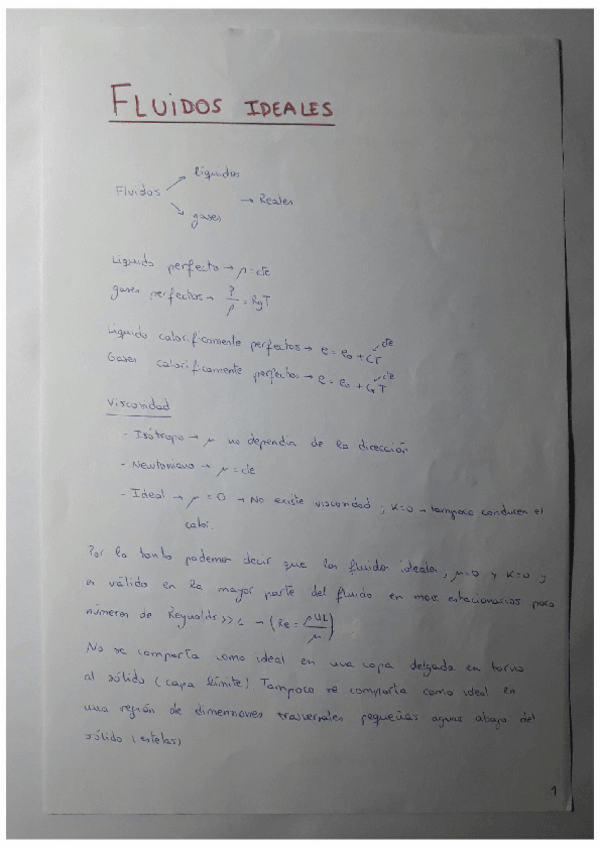 FLUIDOS IDEALES
Fluidos → líquidos
→ gases
→ Reales
Líquido perfecto → ρ = cte
gases perfectos → P/ρ = RgT
Líquido calorificamente perfectos → e = e₀ + CT ↙cte
Gases calorificamente perfectos → e = e₀ + CᵥT ↙cte
Viscosidad
- Isótropo → μ no dependia de la dirección
- Newtoniano → μ = cte
- Ideal → μ = 0 → No existe viscosidad, K=0 → tampoco conducen el
calor.
Por lo tanto podemos decir que los fluidos ideales, μ=0 y K=0,
es válido en la mayor parte del fluido en mov estacionarios para
números de Reynolds >> 1 → (Re = ρUL/μ)
No se comporta como ideal en una capa delgada en torno
al sólido (capa límite) Tampoco se comporta como ideal en
una región de dimensiones trasversales pequeñas aguas abajo del
sólido (estelas)
1